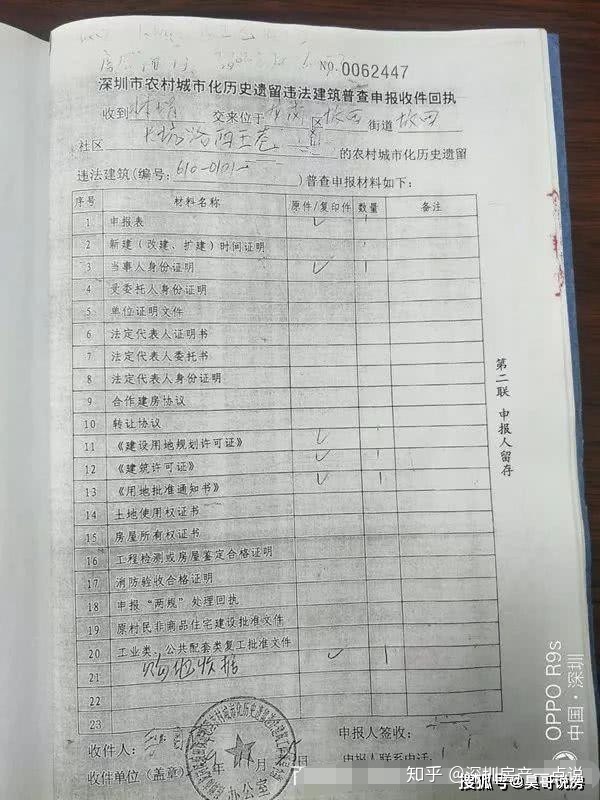 NO.0062447
深圳市农村城市化历史遗留违法建筑普查申报收件回执
收到 交来位于 区 坂田 街道 坂田
社区 的农村城市化历史遗留
违法建筑(编号: 610-0101 )普查申报材料如下:
序号 材料名称 原件/复印件 数量 备注
1 申报表 ✓ 1
2 新建(改建、扩建)时间证明
3 当事人身份证明 ✓ 1
4 受委托人身份证明
5 单位证明文件
6 法定代表人证明书
7 法定代表人委托书
8 法定代表人身份证明
9 合作建房协议
10 转让协议
11 《建设用地规划许可证》 ✓ 1
12 《建筑许可证》 ✓ 1
13 《用地批准通知书》 ✓ 1
14 土地使用权证书
15 房屋所有权证书
16 工程检测或房屋鉴定合格证明
17 消防验收合格证明
18 申报“两规”处理回执
19 原村民非商品住宅建设批准文件
20 工业类、公共配套类复工批准文件
21 购地收据 ✓ 1
22
23
收件人: 申报人签收:
收件单位(盖章) 申报人联系电话:
办公室
第二联 申报人留存
OPPO R9s
中国·深圳
知乎 @深圳房产一点说
搜狐号@吴哥说房